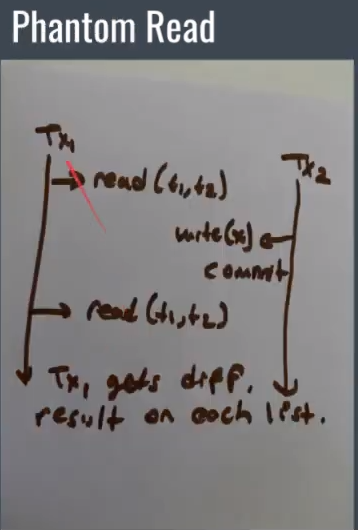 Phantom Read
Tx₁
Tx₂
read (t₁,t₂)
write(x)
commit
read (t₁,t₂)
Tx₁ gets diff.
result on each list.